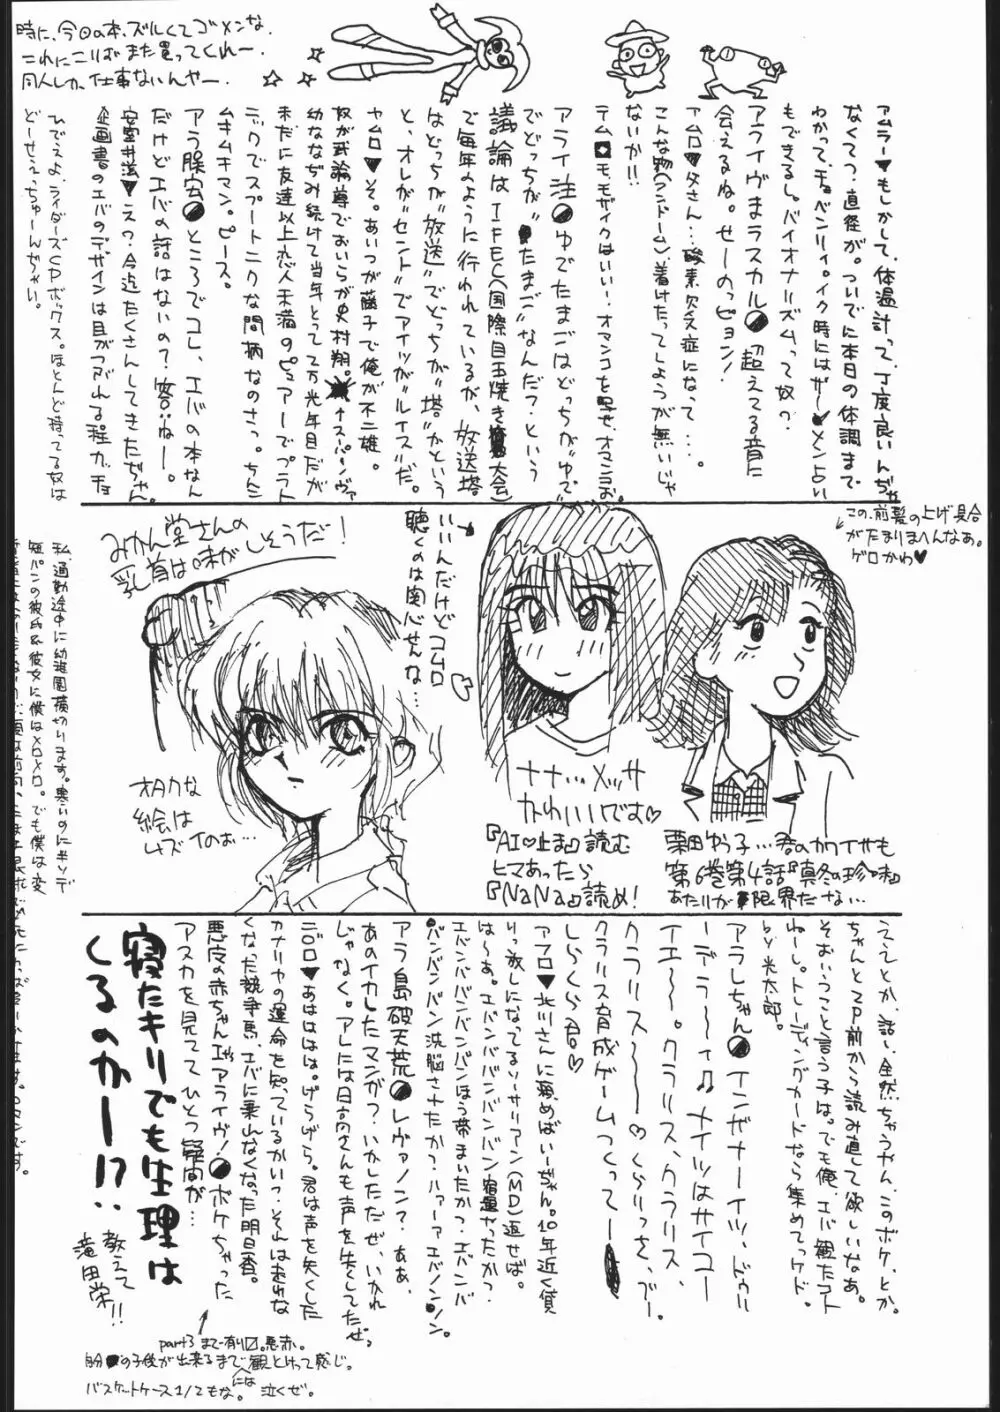 時に、今回の本、ズルくてゴメンな。
これにこりばまた買ってくれー。
同人しか仕事ないんやー。
アムラー▼もしかして、体温計って、丁度良いんぢゃ
なくてっ?直径が。ついでに本日の体調まで
わかって、チョベンリィ。
もできるし。バイオナリズムって奴?
アライヴまラスカル 超えてる音に
会えるね。せーのっピョン!
アムロ▼父さん…酸素欠乏症になって…。
こんな物(コンドーム)着けたってしようが無いじゃ
ないか!!
アライ注 ゆでたまごはどっちが"ゆで"
でどっちが"たまご"なんだ?という
議論はIFEC(国際目玉焼き 大会)
で毎年のように行われているが、放送塔
はどっちが"放送"でどっちが"塔"かという
と、オレが"セント"でアイツが"ルイス"だ。
ヤムロ▼そ。あいつが藤子で俺が不二雄。
奴が武論尊でおいらが史村翔。 ↑スーパーノヴァ
幼ななぢみ続けて当年とって七万光年目だが
未だに友達以上恋人未満のピュアーでプラト
ニックでスプートニクな間柄なのさっ。ちんシ
ムキムキマン。ピース。
アラ腺害 ところでコレ、エバの本なん
だけどエバの話はないの?答:ねー。
安室井弦▼えっ?今迄たくさんしてきたぢゃん。
企画書のエバのデザインは目がアバれる程カッチョ
ひでえよ、ライダーズCDボックス。ほとんど持ってる奴は
どーせぇっちゅーんぢゃい。
この、前髪の上げ具合
がたまりまへんなあ。
ゲロかわ♥
いいんだけどコムロ
聴くのは関心せんな…
みかん堂さんの
乳首は味がしそうだ!
オタクな
絵は
ムズイのぉ…
ナナ…メッサ
かわいいです♡
『AI♡止ま』読む
ヒマあったら
『NaNa』読め!
栗田ゆう子…君のカワイサも
第6巻第4話『真冬の珍味』
あたりが限界だな…
私、通勤途中に幼稚園横切ります。寒いのに半ズ
短パンの彼氏&彼女に僕はメロメロ。でも僕は変
ええとか、話し全然ちゃうやん、このボケ、とか。
ちゃんと2P前から読み直して欲しいなあ。
そおいうこと言う子は。でも俺、エバ観たコト
ねーし。トレーディングカードなら集めてっケド。
by光太郎。
アラしちゃん インザナーイツ、ドゥル
ーデラ〜ィ♫ナイツはサイコー
イエ〜。クラリス、クラリス、
クラリス〜♡くらりっさ、でー。
クラリス育成ゲームつくって〜
しらくら君♡
アフロ▼北川さんに薦めばいーぢゃん。10年近く貸
りっ放しになってるソーサリアン(MD)返せば。
は〜あ。エバンバンバンバンバン宿題やったかっ?
エバンバンバンバンバンほう帯まいたかっ?エバンバ
ンバンバンバン洗脳さきたかっ?ハァーアエバノンノン。
アラ島破天荒 レヴァノン?ああ、
あのイカしたマンガっ?いかしただぜ、いかれ
じゃなく。アレには日高さんも声を失くしてたぜ。
ニロロ▼あははは。げらげら。君は声を失くした
カナリヤの運命を知っているかいっ?そんはまれな
くなった競争馬、エバに乗んなくなった明日香。
悪皮の赤ちゃんエヴァアライヴ! ボケちゃった
アスカを見てて ひとつ疑問が…
寝たキリでも生理は
くるのかー!?:
教えて
滝田栄!!
part3まで有り〼。悪赤。
自分の子供が出来るまで観とけって感じ。
バスケットケース1/2もな。には泣くぜ。